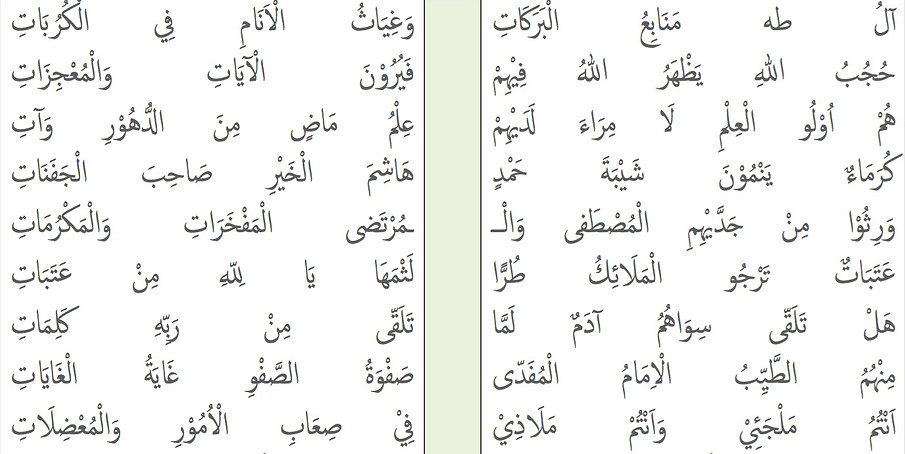 آلُ طٰه مَنَابِعُ الْبَرَكَاتِ وَغِيَاثُ الْاَنَامِ فِي الْكُرُبَاتِ
حُجُبُ اللهِ يَظْهَرُ اللهُ فِيْهِمْ فَيُرُوْنَ الْآيَاتِ وَالْمُعْجِزَاتِ
هُمْ اُوْلُو الْعِلْمِ لَا مِرَاءَ لَدَيْهِمْ عِلْمُ مَاضٍ مِنَ الدُّهُوْرِ وَآتِ
كُرَمَاءٌ يَنْمُوْنَ شَيْبَةَ حَمْدٍ هَاشِمَ الْخَيْرِ صَاحِبَ الْجَفَنَاتِ
وَرِثُوْا مِنْ جَدَّيْهِمِ الْمُصْطَفى وَالْـ ـمُرْتَضى الْمَفْخَرَاتِ وَالْمَكْرُمَاتِ
عَتَبَاتٌ تَرْجُو الْمَلَائِكُ طُرًّا لَثْمَهَا يَا لِلّهِ مِنْ عَتَبَاتِ
هَلْ تَلَقّى سِوَاهُمُ آدَمٌ لَمَّا تَلَقّى مِنْ رَبِّهِ كَلِمَاتِ
مِنْهُمُ الطَّيِّبُ الْاِمَامُ الْمُفَدّى صَفْوَةُ الصَّفْوِ غَايَةُ الْغَايَاتِ
اَنْتُمُ مَلْجَئِيْ وَاَنْتُمْ مَلَاذِيْ فِيْ صِعَابِ الْاُمُوْرِ وَالْمُعْضِلَاتِ